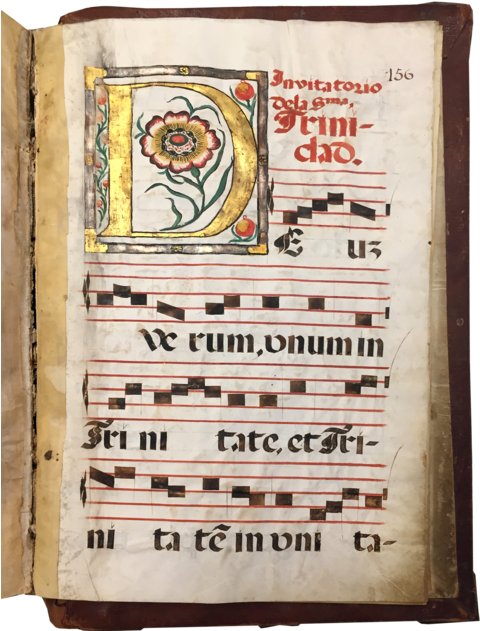 156
Invitatorio
dela Sma.
Trini-
dad.
DEuz
ve rum, vnum in
Tri ni tate, et Tri-
ni ta tē in vni ta-